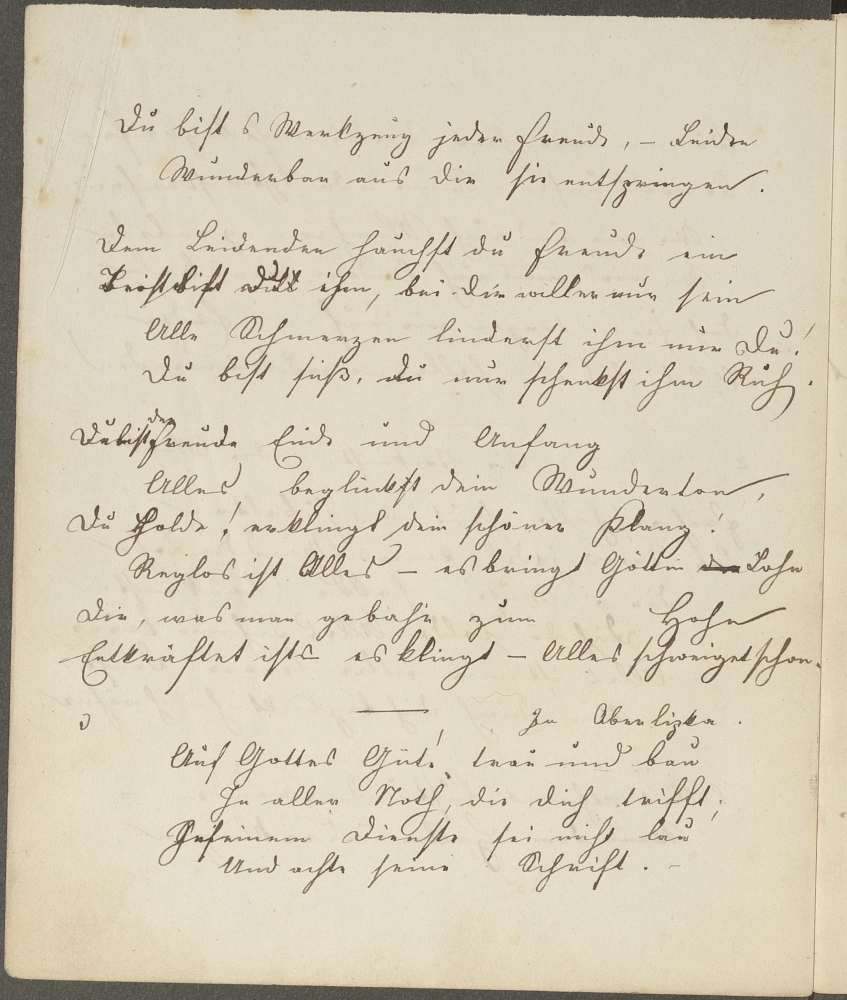 Du bist s Werkzeug jeder Freude, – Leiden
Wunderbar aus dir sie entspringen.
Dem Leidenden hauchst du Freude ein
Trost bist du ihm, bei dir will er nur sein
Alle Schmerzen linderst ihm nur Du!
Du bist süß, du nur schenkst ihm Ruh.
Du bist der Freude Ende und Anfang
Alles beglückt dein Wunderton,
Du Holde! erklingt dein schöner Klang!
Reglos ist Alles – es bringt Götter Lohn
Dir, was man gebahr zum Hohn
Entkräftet ists – es klingt – Alles schweiget schon.
In
Auf Gottes Güte! trau und bau
In aller Noth, die dich trifft;
In seinem Dienste sei nicht lau
Und achte seine Schrift. –